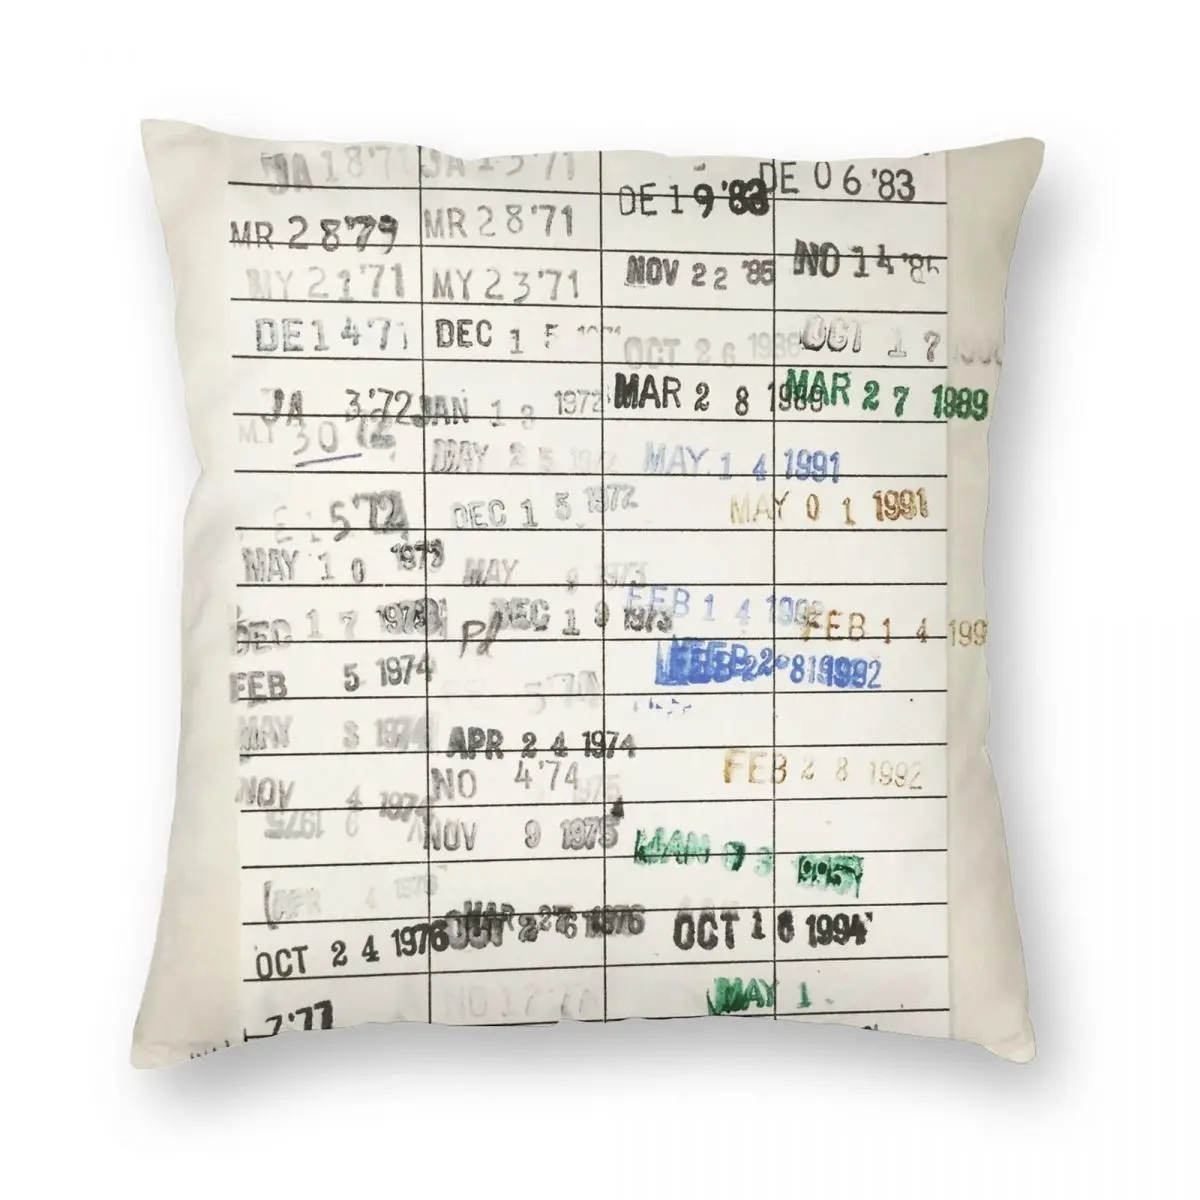 JA 18'7 JA 13'71 DE 0 6 '83
DE 1 9 '83
MR 2 8 '79 MR 2 8 '71
NOV 2 2 '85 NO 1 4 '85
MY 2 1 '71 MY 2 3 '71
DE 1 4 '71 DEC 1 5 OCT 2 6 1988 OCT 1 7
JA 3 '72 JAN 1 3 1972 MAR 2 8 1989 MAR 2 7 1989
MY 3 0 72
MAY 2 5 MAY 1 4 1991
5 '72 DEC 1 5 1972 MAY 0 1 1991
MAY 1 0 1973 MAY 9 1973
DEC 1 7 1973 Pd DEC 1 9 1973 FEB 1 4 199 FEB 1 4 199
FEB 5 1974 FEB 2 8 1992
MAY 3 1974 APR 2 4 1974
NOV 4 1974 NO 4 '74 FEB 2 8 1992
1975 NOV 9 1975
APR 4 1976
OCT 2 4 1976 OCT 1 6 1994
7 '77 NO 1 7 '77 MAY 1